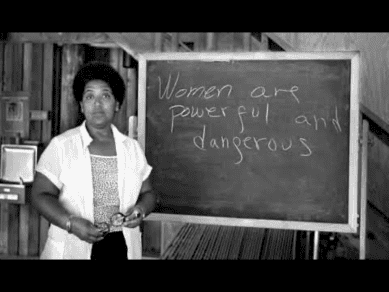 Women are
powerful and
dangerous